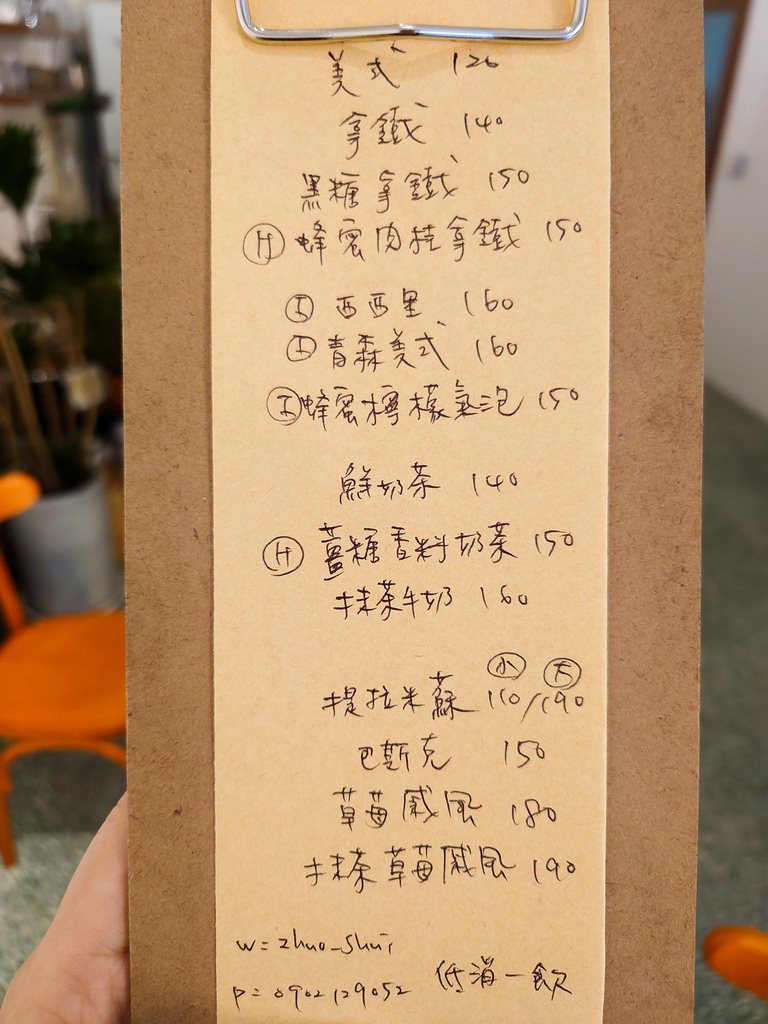 美式 120
拿鐵 140
黑糖拿鐵 150
Ⓗ 蜂蜜肉桂拿鐵 150
Ⓘ 西西里 160
Ⓘ 青森美式 160
Ⓘ 蜂蜜檸檬氣泡 150
鮮奶茶 140
Ⓗ 薑糖香料奶茶 150
抹茶牛奶 160
小 大
提拉米蘇 110/190
巴斯克 150
草莓戚風 180
抹茶草莓戚風 190
W=zhuo_shui
P=0902129052 低消一飲